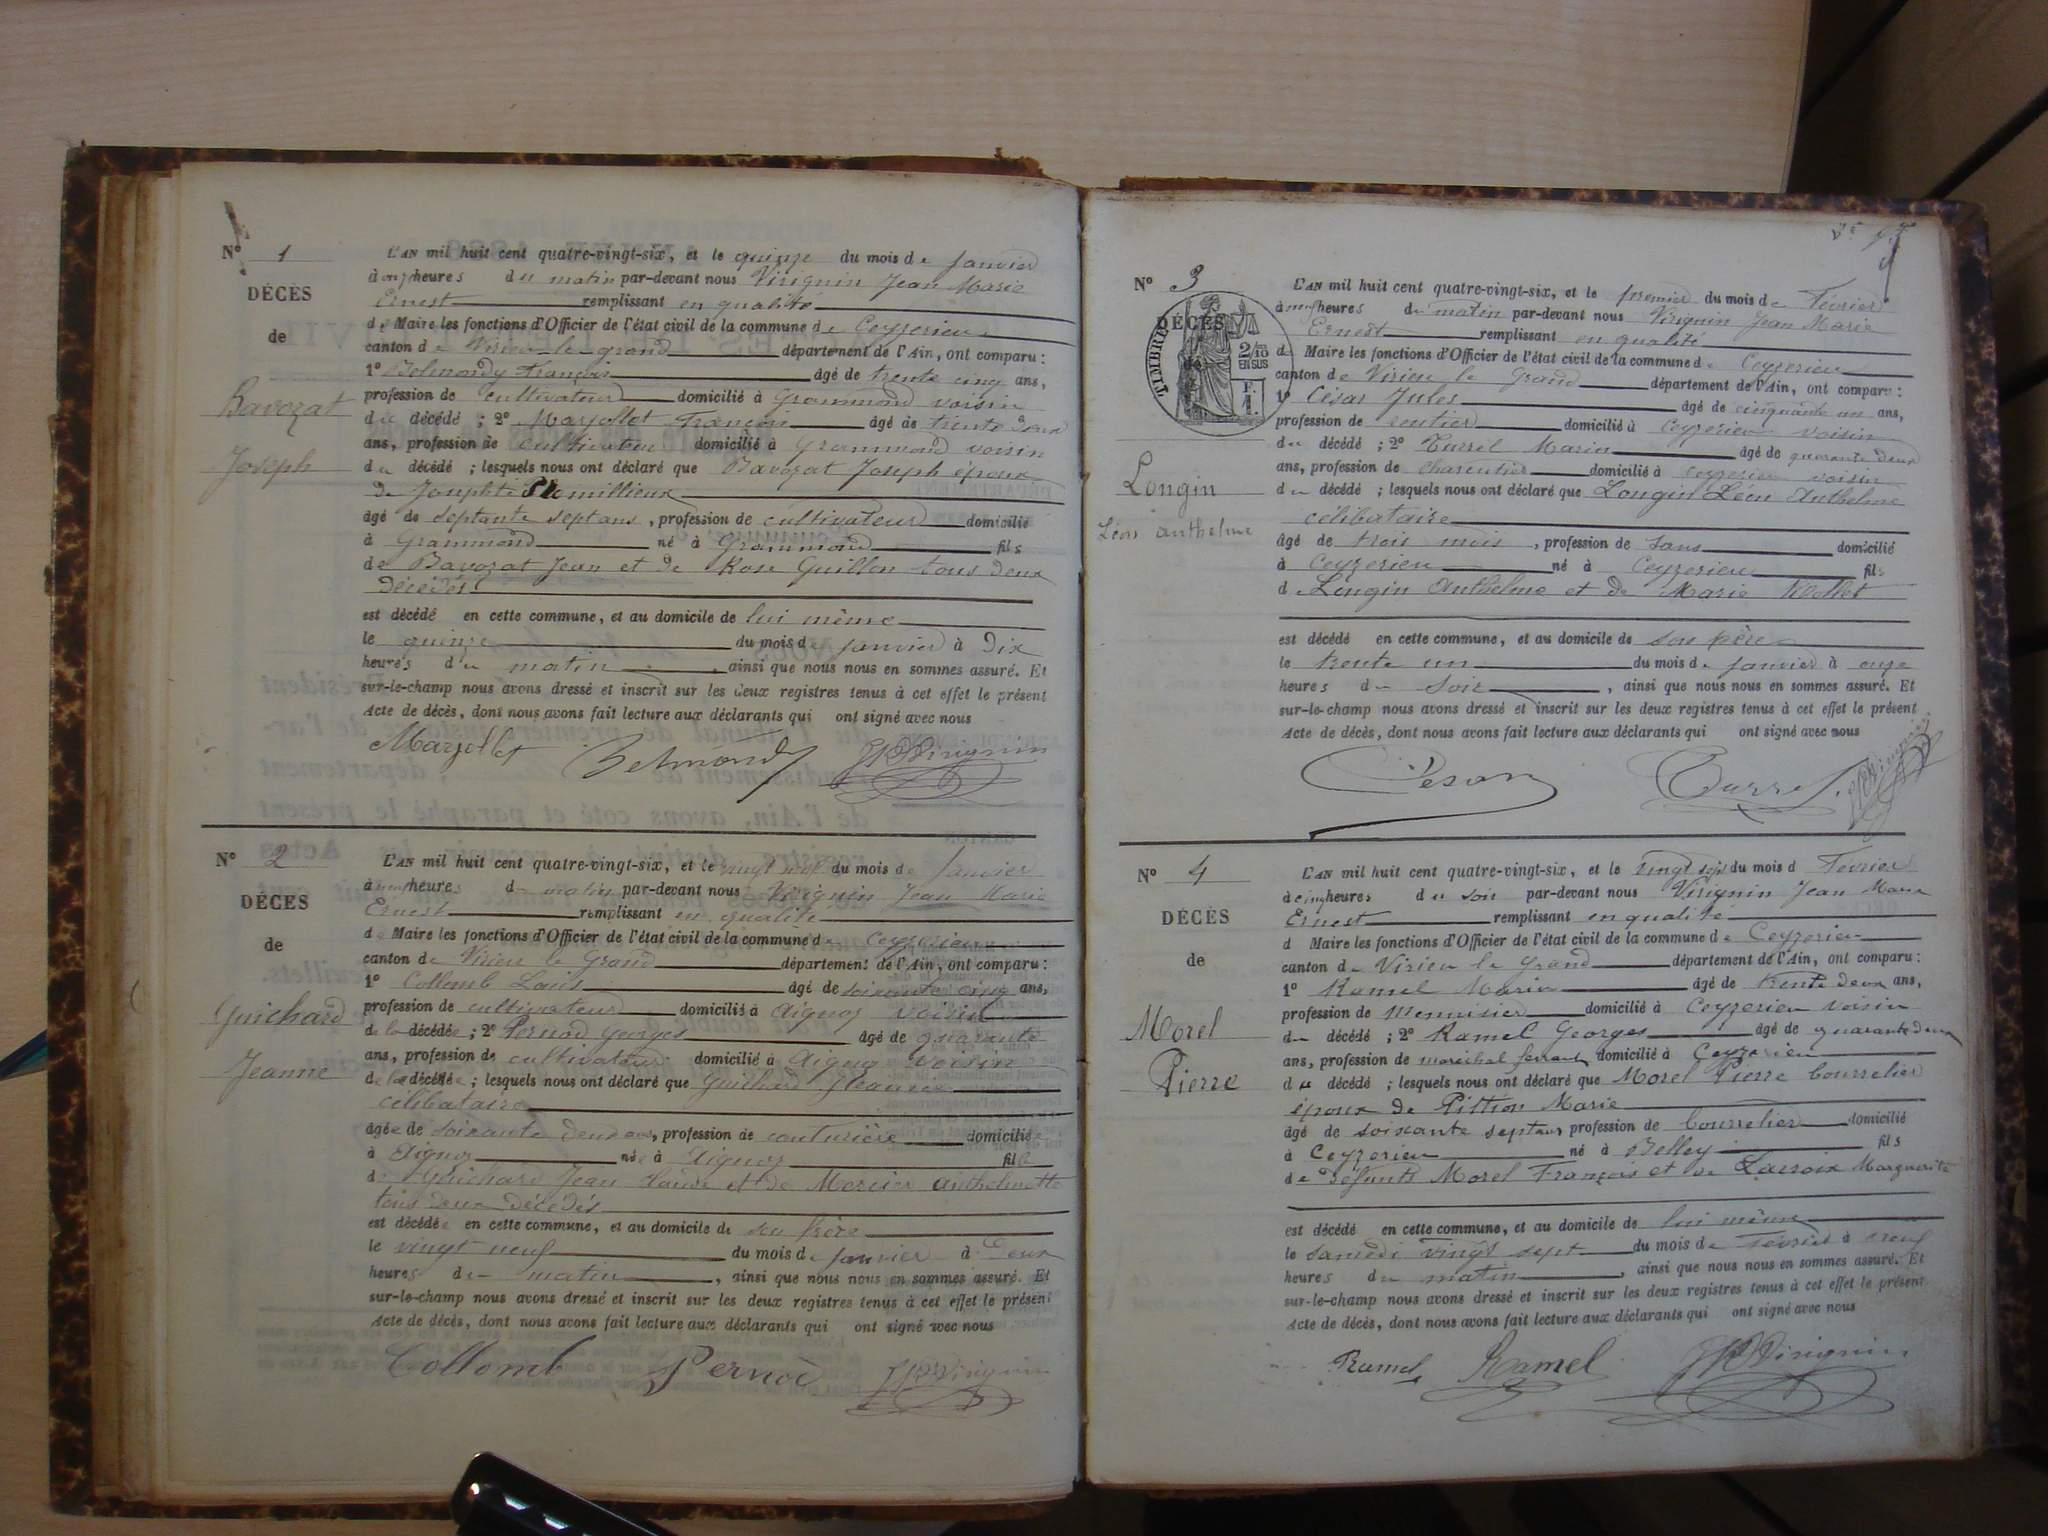 N° 1
DÉCÈS
de
Bavozat
Joseph
L'AN mil huit cent quatre-vingt-six, et le quinze du mois de janvier
à onze heures du matin par-devant nous Virignin Jean Marie
Ernest remplissant en qualité
de Maire les fonctions d'Officier de l'état civil de la commune de Ceyzerieu
canton de Virieu-le-grand département de l'Ain, ont comparu :
1° Belmondy françois âgé de trente cinq ans,
profession de cultivateur domicilié à Grammond voisin
du décédé ; 2° Marjollet François âgé de trente deux
ans, profession de cultivateur domicilié à Grammond voisin
du décédé ; lesquels nous ont déclaré que Bavozat Joseph époux
de Josephte
âgé de septante sept ans, profession de cultivateur domicilié
à Grammond né à Grammond fils
de Bavozat Jean et de Rose Guillon tous deux
Décédés
est décédé en cette commune, et au domicile de lui même
le quinze du mois de janvier à Dix
heures du matin, ainsi que nous nous en sommes assuré. Et
sur-le-champ nous avons dressé et inscrit sur les deux registres tenus à cet effet le présent
Acte de décès, dont nous avons fait lecture aux déclarants qui ont signé avec nous
Marjollet Belmondy Virignin
N° 2
DÉCÈS
de
Guichard
Jeanne
L'AN mil huit cent quatre-vingt-six, et le vingt neuf du mois de janvier
à heures du matin par-devant nous Virignin Jean Marie
Ernest remplissant en qualité
de Maire les fonctions d'Officier de l'état civil de la commune de Ceyzerieu
canton de Virieu le Grand département de l'Ain, ont comparu :
1° Collomb Louis âgé de soixante cinq ans,
profession de cultivateur domicilié à Aignoz voisin
de la décédée ; 2° Pernod Georges âgé de quarante
ans, profession de cultivateur domicilié à Aignoz voisin
de la décédée ; lesquels nous ont déclaré que Guichard Jeanne
célibataire
âgée de soixante deux ans, profession de couturière domiciliée
à Aignoz née à Aignoz fille
de Guichard Jean Claude et de Mercier Anthelmette
tous deux décédés
est décédée en cette commune, et au domicile de son frère
le vingt neuf du mois de janvier à Deux
heures du matin, ainsi que nous nous en sommes assuré. Et
sur-le-champ nous avons dressé et inscrit sur les deux registres tenus à cet effet le présent
Acte de décès, dont nous avons fait lecture aux déclarants qui ont signé avec nous
Collomb Pernod Virignin
N° 3
DÉCÈS
TIMBRE
2/10
EN SUS
F.
1.
Longin
Léon anthelme
L'AN mil huit cent quatre-vingt-six, et le premier du mois de Février
à neuf heures du matin par-devant nous Virignin Jean Marie
Ernest remplissant en qualité
de Maire les fonctions d'Officier de l'état civil de la commune de Ceyzerieu
canton de Virieu le Grand département de l'Ain, ont comparu :
1° César Jules âgé de cinquante un ans,
profession de rentier domicilié à Ceyzerieu voisin
du décédé ; 2° Turrel Marin âgé de quarante deux
ans, profession de charcutier domicilié à ceyzerieu voisin
du décédé ; lesquels nous ont déclaré que Longin Léon Anthelme
célibataire
âgé de trois mois, profession de sans domicilié
à Ceyzerieu né à Ceyzerieu fils
de Longin Anthelme et de Marie
est décédé en cette commune, et au domicile de son père
le trente un du mois de janvier à onze
heures du soir, ainsi que nous nous en sommes assuré. Et
sur-le-champ nous avons dressé et inscrit sur les deux registres tenus à cet effet le présent
Acte de décès, dont nous avons fait lecture aux déclarants qui ont signé avec nous
César Turrel Virignin
N° 4
DÉCÈS
de
Morel
Pierre
L'AN mil huit cent quatre-vingt-six, et le vingt sept du mois d Février
à cinq heures du soir par-devant nous Virignin Jean Marie
Ernest remplissant en qualité
d Maire les fonctions d'Officier de l'état civil de la commune de Ceyzerieu
canton de Virieu le Grand département de l'Ain, ont comparu :
1° Ramel Marin âgé de trente deux ans,
profession de Menuisier domicilié à Ceyzerieu voisin
du décédé ; 2° Ramel Georges âgé de quarante deux
ans, profession de maréchal ferrant domicilié à Ceyzerieu
du décédé ; lesquels nous ont déclaré que Morel Pierre bourrelier
époux de Pittion Marie
âgé de soixante sept ans profession de bourrelier domicilié
à Ceyzerieu né à Belley fils
de défunts Morel François et de Lacroix Marguerite
est décédé en cette commune, et au domicile de lui même
le samedi vingt sept du mois de février à neuf
heures du matin, ainsi que nous nous en sommes assuré. Et
sur-le-champ nous avons dressé et inscrit sur les deux registres tenus à cet effet le présent
Acte de décès, dont nous avons fait lecture aux déclarants qui ont signé avec nous
Ramel Ramel Virignin